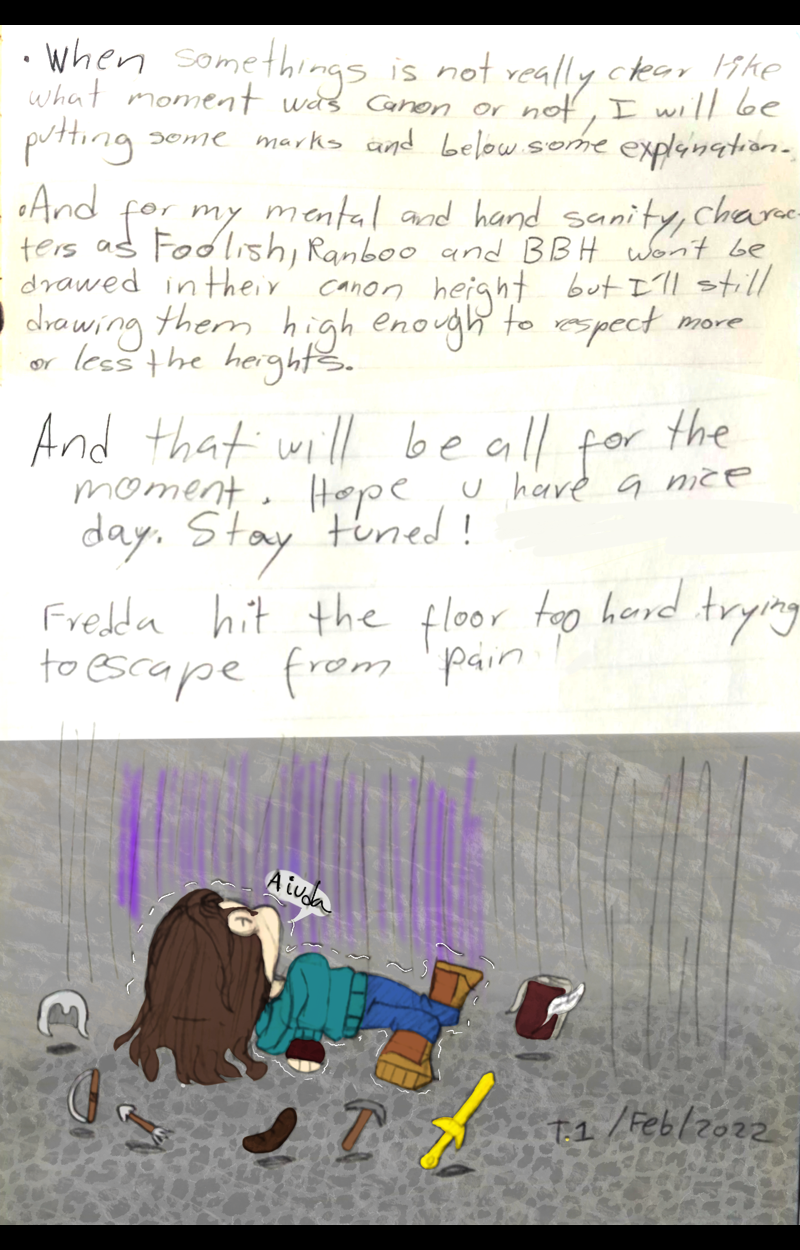 • When somethings is not really clear like
what moment was canon or not, I will be
putting some marks and below some explanation.
• And for my mental and hand sanity, charac-
ters as Foolish, Ranboo and BBH won't be
drawed in their canon height but I'll still
drawing them high enough to respect more
or less the heights.
And that will be all for the
moment. Hope u have a nice
day. Stay tuned!
Fredda hit the floor too hard trying
to escape from pain!
Aiuda
T.1 /Feb/2022